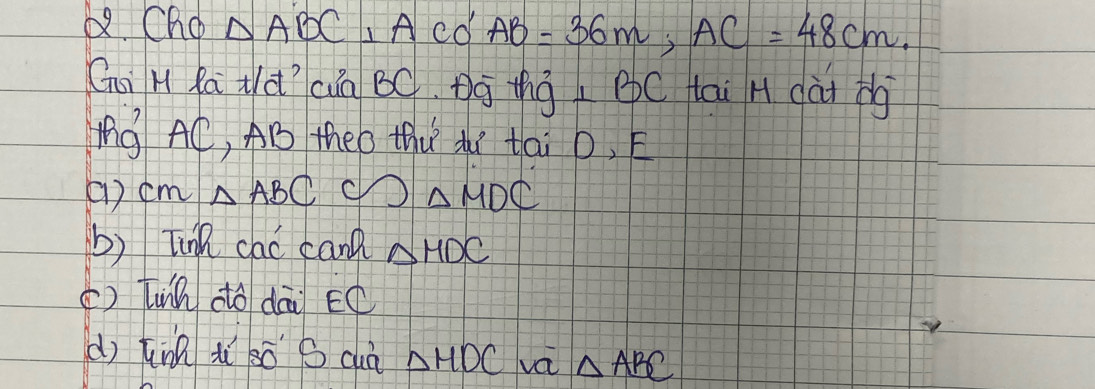 2. Cho △ ABC ⊥ A có AB = 36m, AC = 48cm.
Gọi M là t/đ' của BC. Đg thg̉ ⊥ BC tại M cắt đg
thg̉ AC, AB theo thứ tự tại D, E
a) cm △ ABC ∽ △ MDC
b) Tính các cạnh △ MDC
c) Tính độ dài EC
d) tính tỉ số S của △ MDC và △ ABC